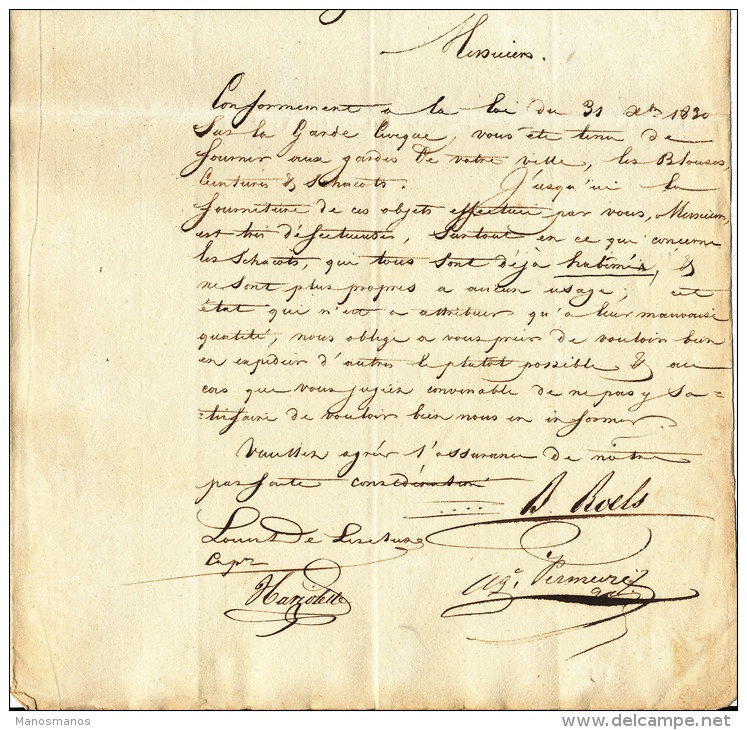 Messieurs.
Conformement a la loi du 31 Xbre 1830
Sur la Garde Civique, vous ete tenu de
fournir aux gardes de votre ville, les Blouses,
Ceintures & Schacots. Jusqu'ici la
fourniture de ces objets effectuée par vous, Messieurs,
est très défectueuses, surtout en ce qui concerne
les Schacots, que tous sont déjà &
ne sont plus propres a aucun usage; cet
état qui n'est a attribuer qu'a leur mauvaise
quantité, nous oblige a vous prier de vouloir bien
en expedier d'autres le plutot possible & au
cas que vous jugiez convenable de ne pas y sa=
=tisfaire de vouloir bien nous en informer.
Veuillez agréer l'assurance de nôtre
parfaite considération
B. Roels
Cap.
Hariolette
Aug. Vermeire
Manosmanos
delcampe.net